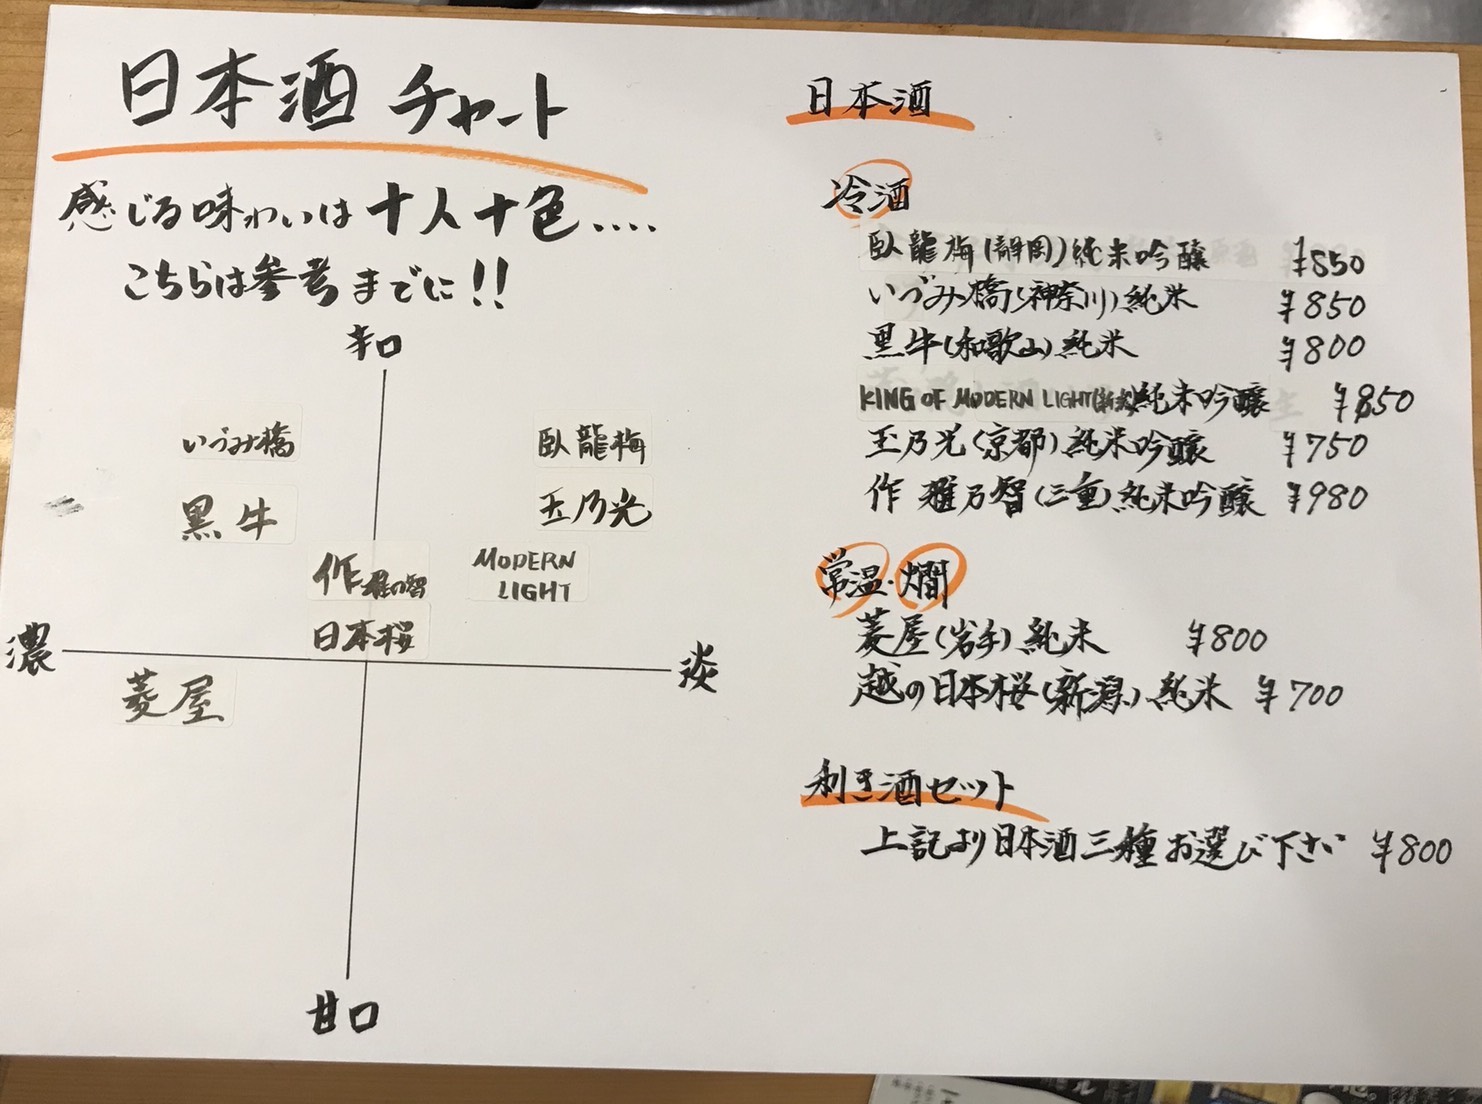 日本酒チャート
感じる味わいは十人十色....
こちらは参考までに!!
辛口
いづみ橋
臥龍梅
黒牛
玉乃光
作 雅の智
MODERN
LIGHT
日本桜
濃
淡
菱屋
甘口
日本酒
冷酒
臥龍梅(静岡)純米吟醸 ¥850
いづみ橋(神奈川)純米 ¥850
黒牛(和歌山)純米 ¥800
KING OF MODERN LIGHT 純米吟醸 ¥850
玉乃光(京都)純米吟醸 ¥750
作 雅乃智(三重)純米吟醸 ¥980
常温・燗
菱屋(岩手)純米 ¥800
越の日本桜(新潟)純米 ¥700
利き酒セット
上記より日本酒三種お選び下さい ¥800